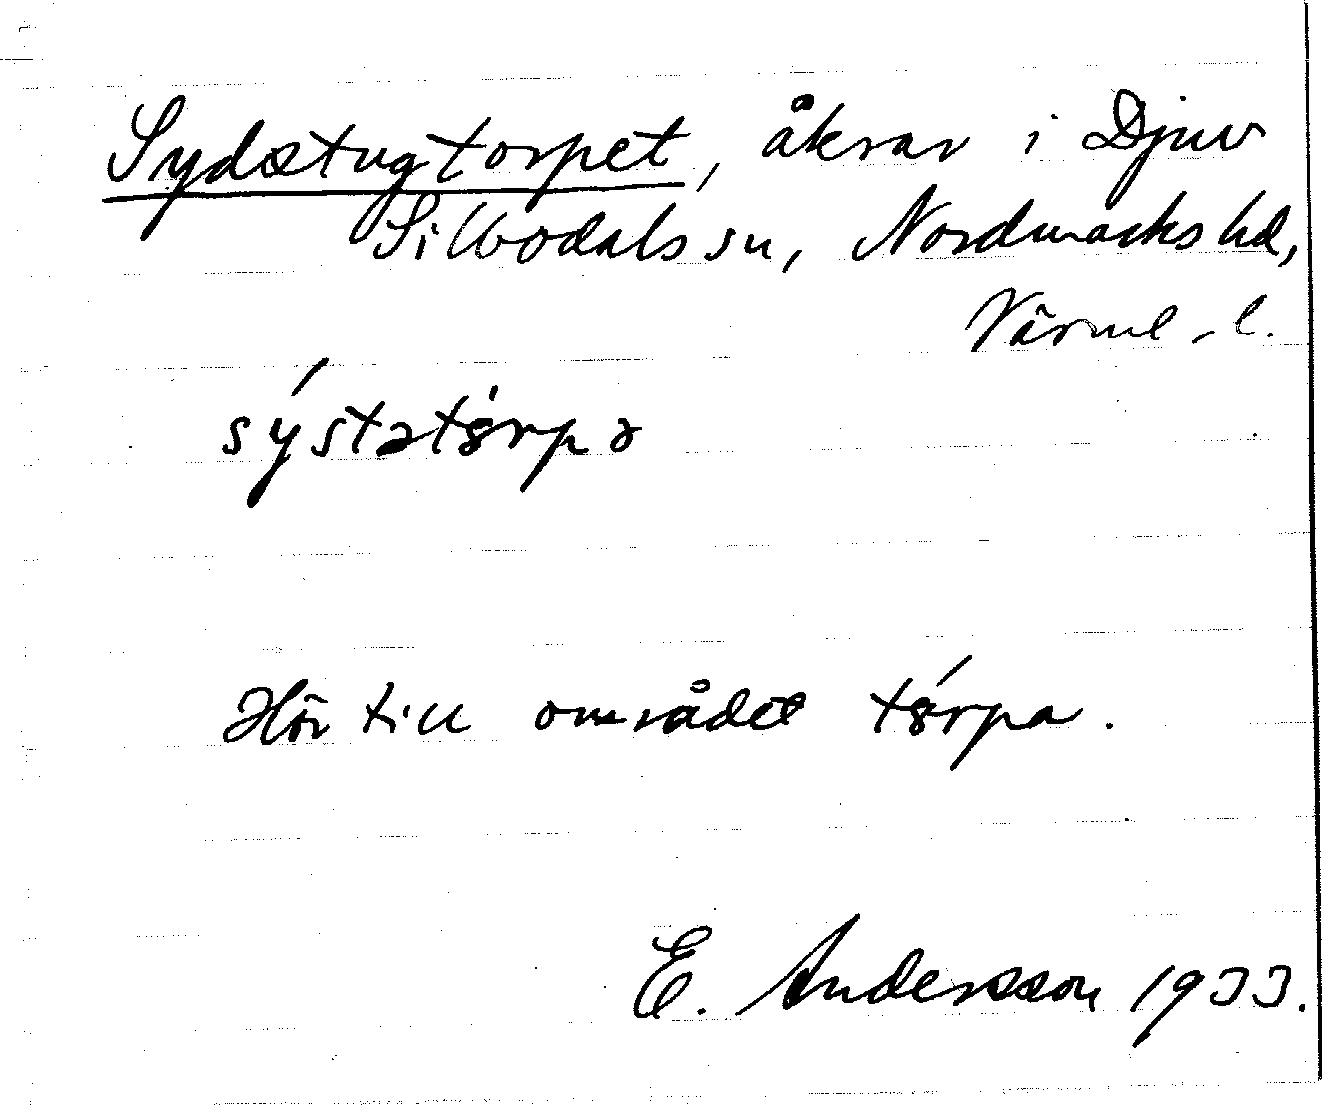 Sydstugtorpet, åkrar i Djuv
Silbodals sn, Nordmarks hd,
Värml. l.
sýstatórpə
Hör till området tórpa.
E. Andersson 1933.